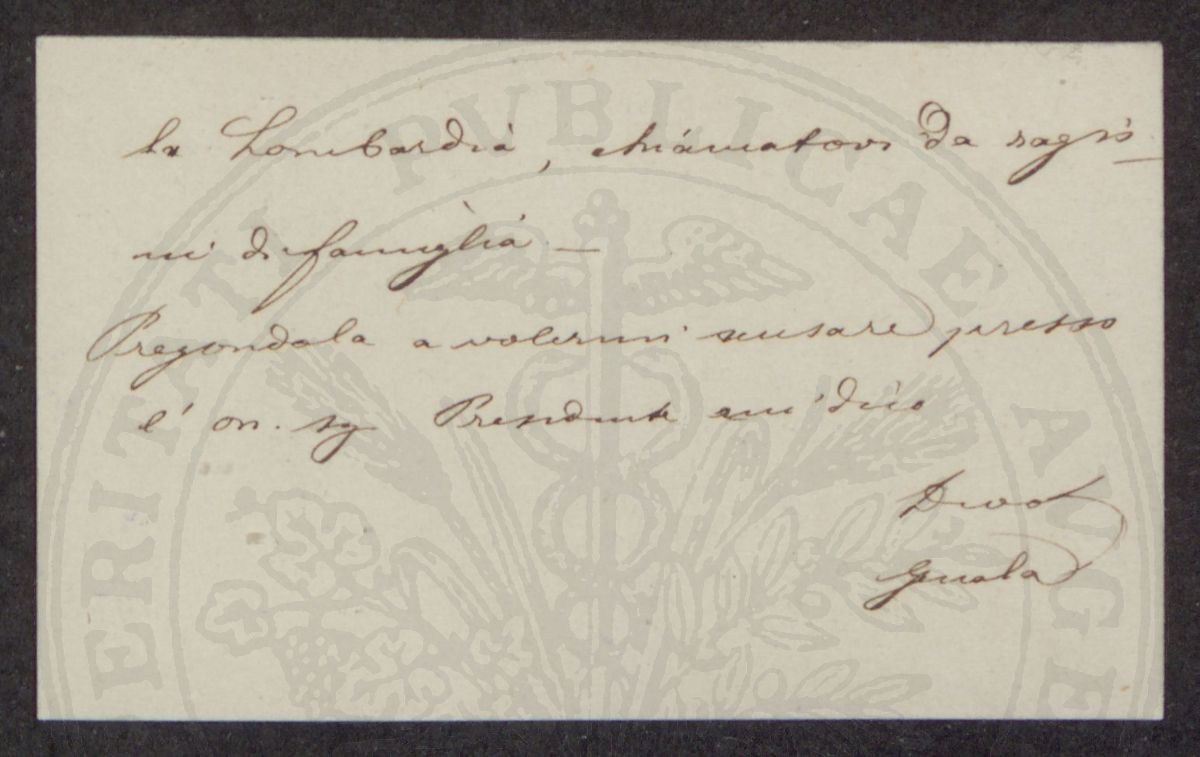 la Lombardia, chiamatovi da ragio
ni di famiglia —
Pregandola a volermi scusare presso
l' on. sig Presidente mi dico
Devot
Guala
PROSPERITATI PUBLICAE AUGENDAE